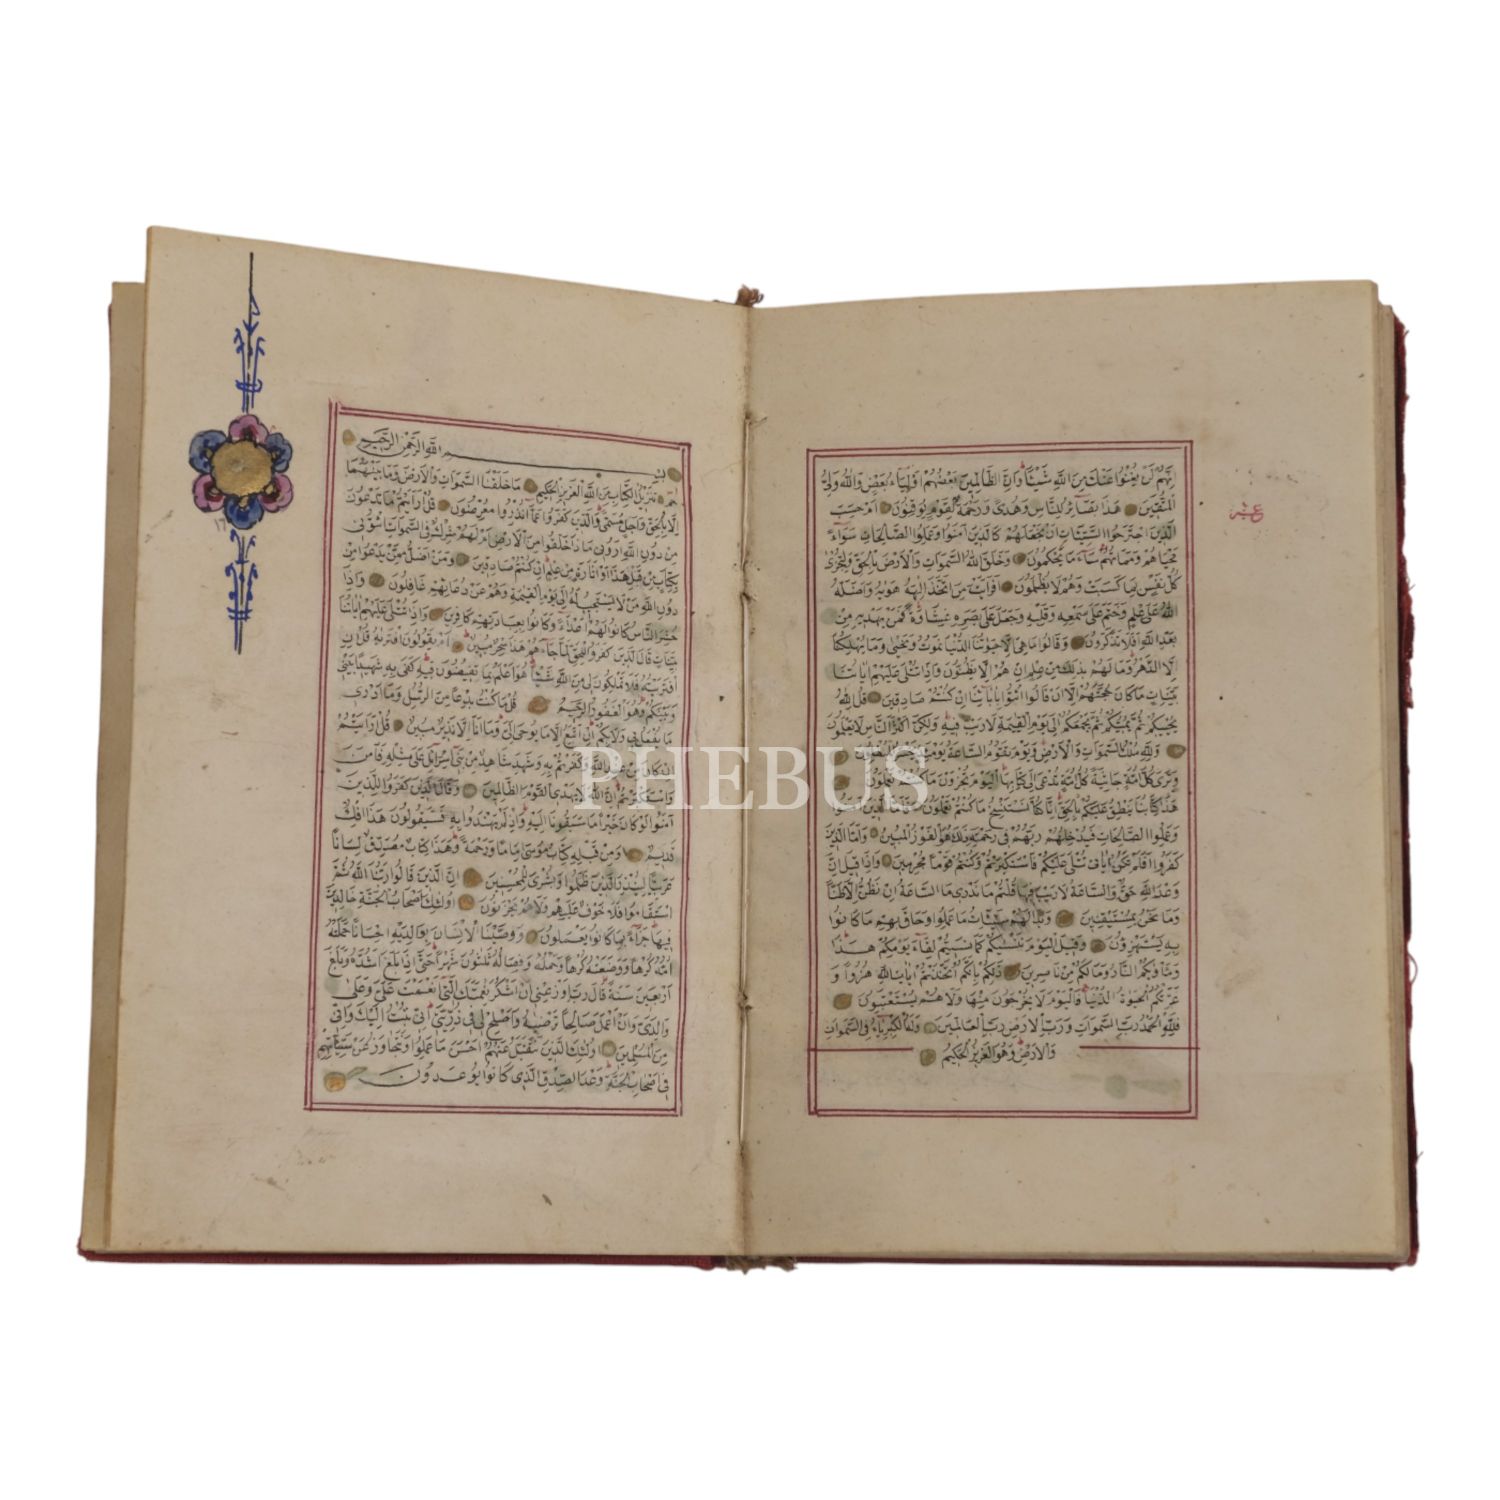 إنهم لن يغنوا عنك من الله شيئا وإن الظالمين بعضهم أولياء بعض والله ولي
المتقين هذا بصائر للناس وهدى ورحمة لقوم يوقنون أم حسب
الذين اجترحوا السيئات أن نجعلهم كالذين آمنوا وعملوا الصالحات سواء
محياهم ومماتهم ساء ما يحكمون وخلق الله السموات والأرض بالحق ولتجزى
كل نفس بما كسبت وهم لا يظلمون أفرأيت من اتخذ إلهه هويه وأضله
الله على علم وختم على سمعه وقلبه وجعل على بصره غشاوة فمن يهديه من
بعد الله أفلا تذكرون وقالوا ما هي إلا حياتنا الدنيا نموت ونحيى وما يهلكنا
إلا الدهر وما لهم بذلك من علم إن هم إلا يظنون وإذا تتلى عليهم آياتنا
بينات ما كان حجتهم إلا أن قالوا ائتوا بآبائنا إن كنتم صادقين قل الله
يحييكم ثم يميتكم ثم يجمعكم إلى يوم القيمة لا ريب فيه ولكن أكثر الناس لا يعلمون
ولله ملك السموات والأرض ويوم تقوم الساعة يومئذ يخسر المبطلون
وترى كل أمة جاثية كل أمة تدعى إلى كتابها اليوم تجزون ما كنتم تعملون
هذا كتابنا ينطق عليكم بالحق إنا كنا نستنسخ ما كنتم تعملون فأما الذين آمنوا
وعملوا الصالحات فيدخلهم ربهم في رحمته ذلك هو الفوز المبين وأما الذين
كفروا أفلم تكن آياتي تتلى عليكم فاستكبرتم وكنتم قوما مجرمين وإذا قيل إن
وعد الله حق والساعة لا ريب فيها قلتم ما ندري ما الساعة إن نظن إلا ظنا
وما نحن بمستيقنين وبدا لهم سيئات ما عملوا وحاق بهم ما كانوا
به يستهزؤن وقيل اليوم ننسيكم كما نسيتم لقاء يومكم هذا
ومأويكم النار وما لكم من ناصرين ذلكم بأنكم اتخذتم آيات الله هزوا و
غرتكم الحيوة الدنيا فاليوم لا يخرجون منها ولا هم يستعتبون
فلله الحمد رب السموات ورب الأرض رب العالمين وله الكبرياء في السموات
والأرض وهو العزيز الحكيم
بسم الله الرحمن الرحيم
حم تنزيل الكتاب من الله العزيز الحكيم ما خلقنا السموات والأرض وما بينهما
إلا بالحق وأجل مسمى والذين كفروا عما أنذروا معرضون قل أرأيتم ما تدعون
من دون الله أروني ماذا خلقوا من الأرض أم لهم شرك في السموات ائتوني
بكتاب من قبل هذا أو أثارة من علم إن كنتم صادقين ومن أضل ممن يدعوا من
دون الله من لا يستجيب له إلى يوم القيمة وهم عن دعائهم غافلون وإذا
حشر الناس كانوا لهم أعداء وكانوا بعبادتهم كافرين وإذا تتلى عليهم آياتنا
بينات قال الذين كفروا للحق لما جاءهم هذا سحر مبين أم يقولون افتريه قل إن
افتريته فلا تملكون لي من الله شيئا هو أعلم بما تفيضون فيه كفى به شهيدا بيني
وبينكم وهو الغفور الرحيم قل ما كنت بدعا من الرسل وما أدري
ما يفعل بي ولا بكم إن أتبع إلا ما يوحى إلي وما أنا إلا نذير مبين قل أرأيتم
إن كان من عند الله وكفرتم به وشهد شاهد من بني إسرائيل على مثله فآمن
واستكبرتم إن الله لا يهدي القوم الظالمين وقال الذين كفروا للذين
آمنوا لو كان خيرا ما سبقونا إليه وإذ لم يهتدوا به فسيقولون هذا إفك
قديم ومن قبله كتاب موسى إماما ورحمة وهذا كتاب مصدق لسانا
عربيا لينذر الذين ظلموا وبشرى للمحسنين إن الذين قالوا ربنا الله ثم
استقاموا فلا خوف عليهم ولا هم يحزنون أولئك أصحاب الجنة خالدين
فيها جزاء بما كانوا يعملون ووصينا الإنسان بوالديه إحسانا حملته
أمه كرها ووضعته كرها وحمله وفصاله ثلثون شهرا حتى إذا بلغ أشده وبلغ
أربعين سنة قال رب أوزعني أن أشكر نعمتك التي أنعمت علي وعلى
والدي وأن أعمل صالحا ترضيه وأصلح لي في ذريتي إني تبت إليك وإني
من المسلمين أولئك الذين نتقبل عنهم أحسن ما عملوا ونتجاوز عن سيئاتهم
في أصحاب الجنة وعد الصدق الذي كانوا يوعدون
PHEBUS